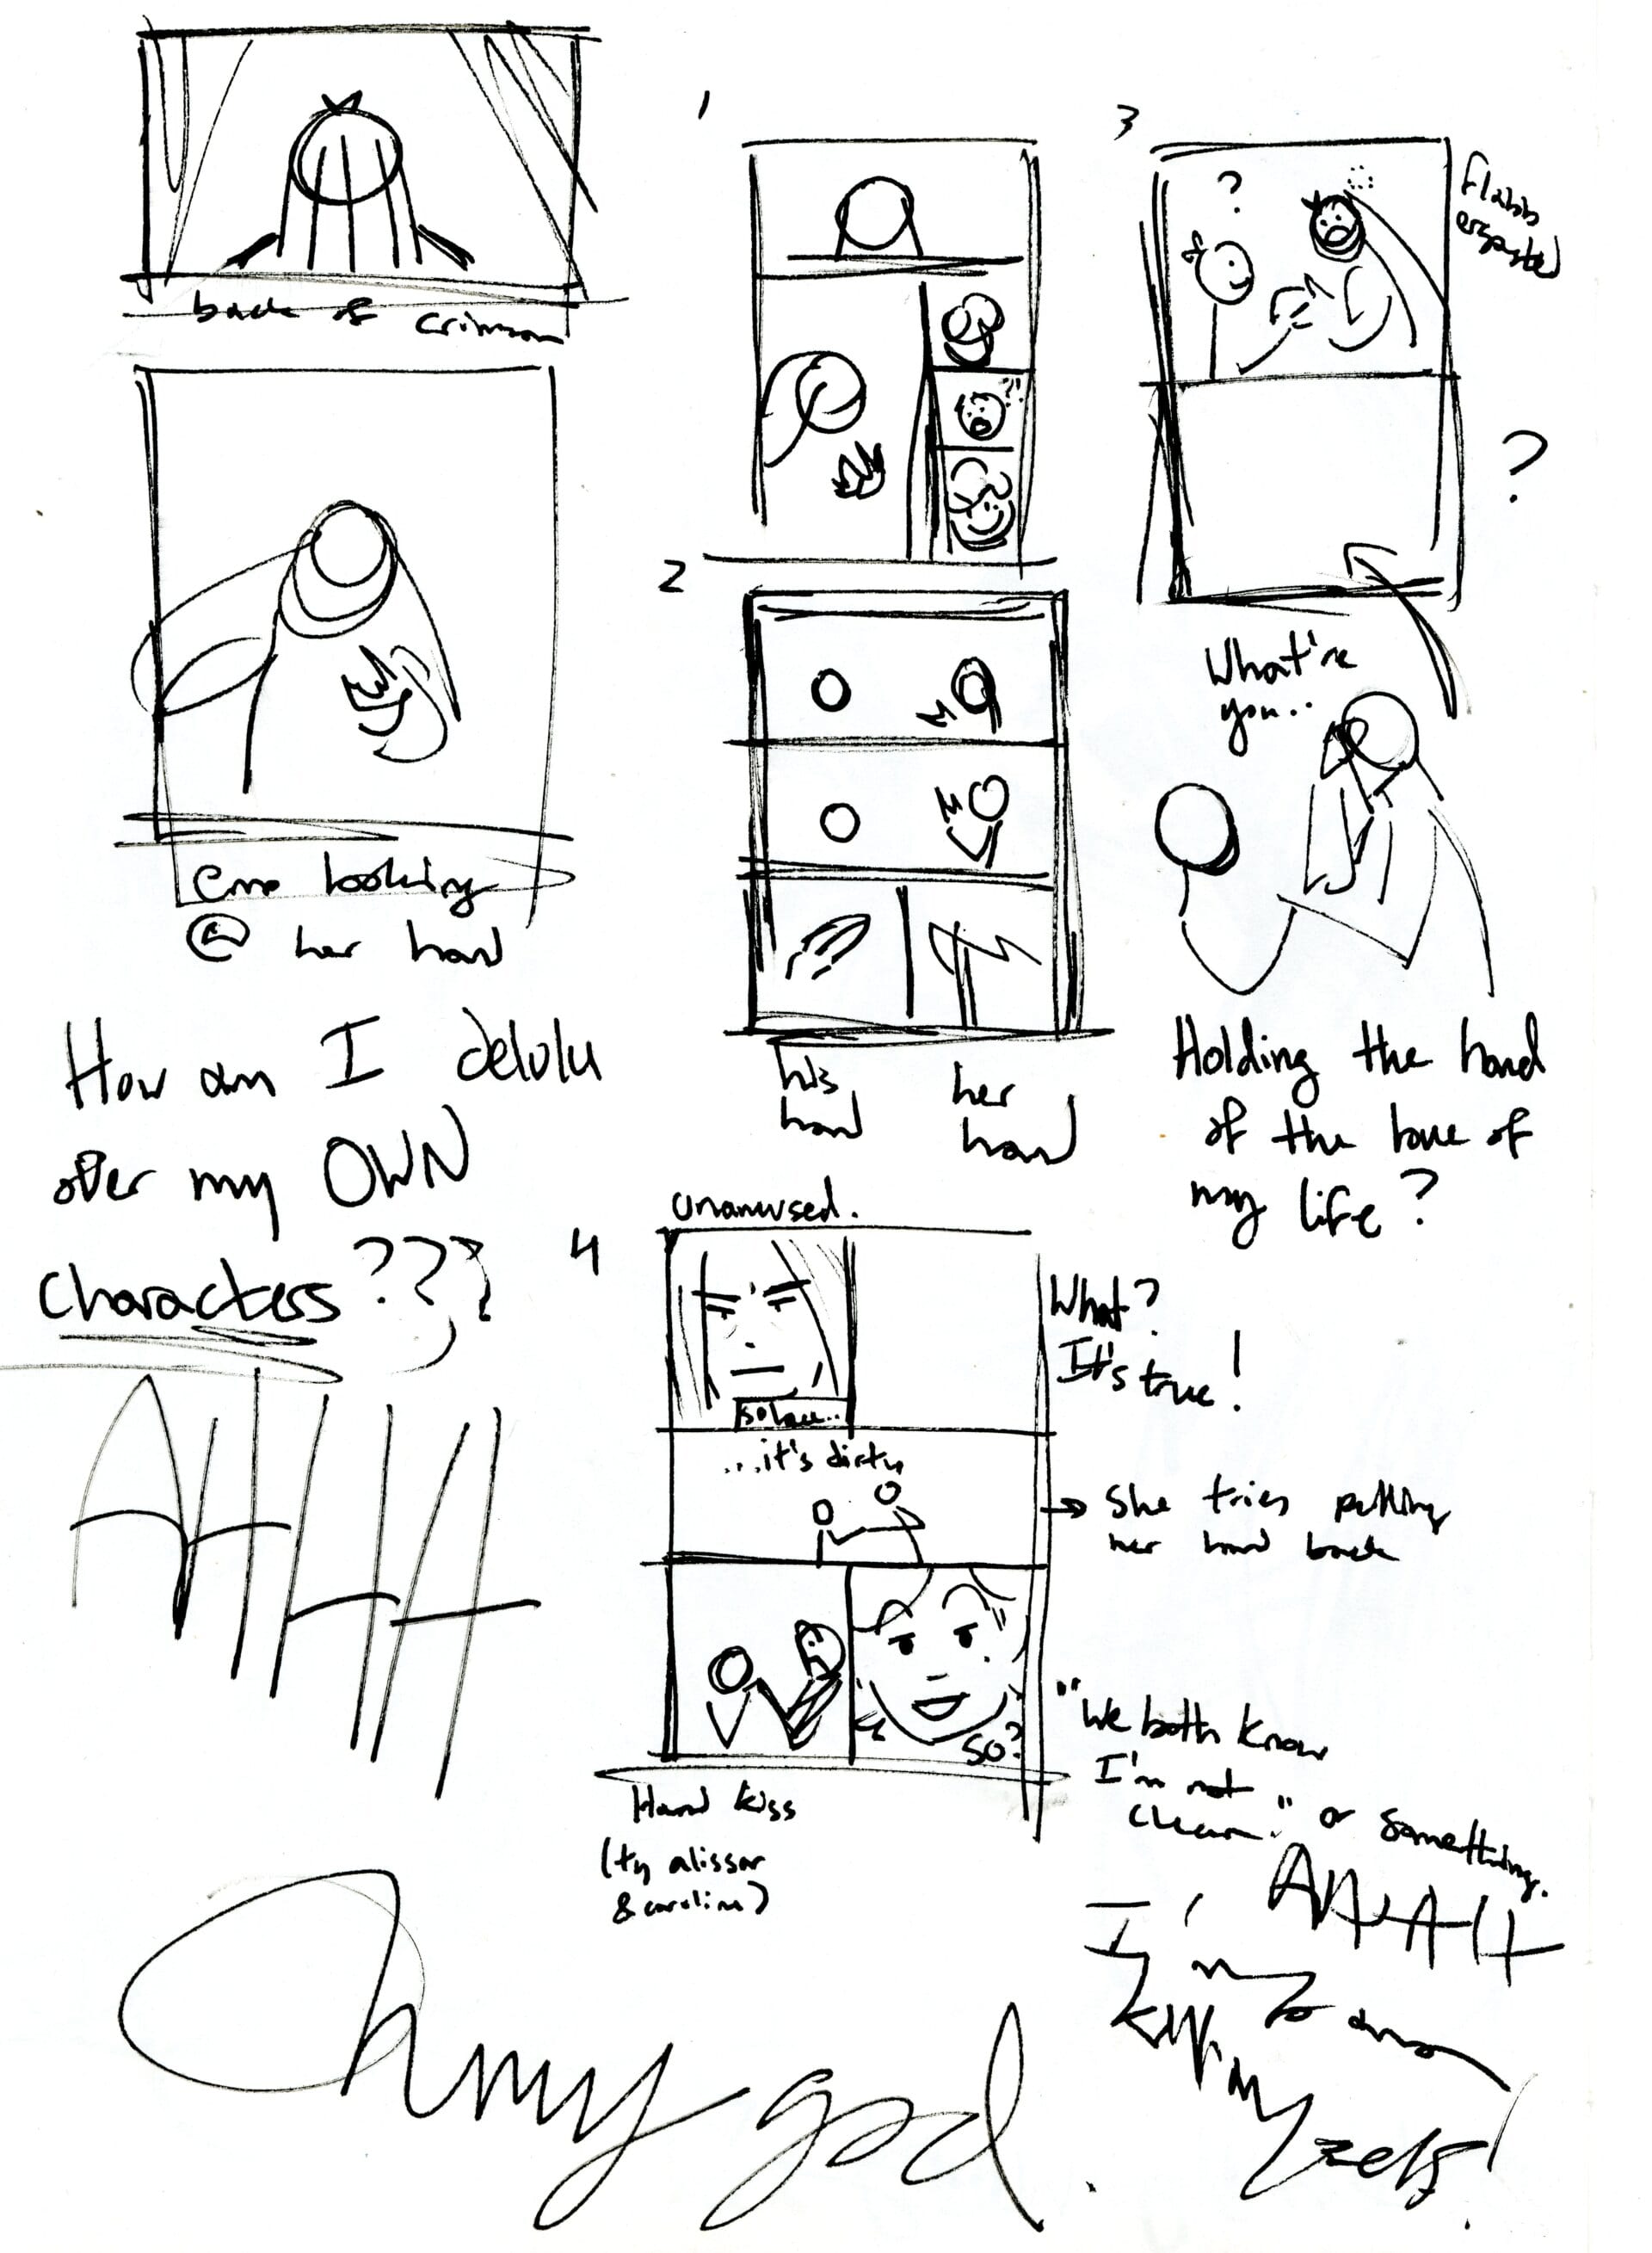 back of crimson
looking
@ her hand
How am I delulu
over my OWN
characters???
AHHH
1
2
his
hand
her
hand
3
flabb
ergasted
?
?
?!
What're
you..
Holding the hand
of the love of
my life?
4
unamused.
What?
It's true!
...it's dirty
→ She tries pulling
her hand back
SO?
Hand kiss
(ty alissar
& caroline)
"We both know
I'm not
clean." or something.
AHHHH
I'm
myself!
Ohmygod.